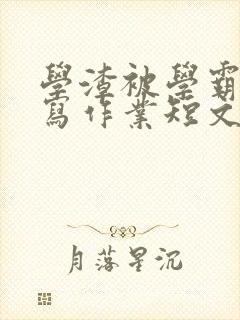 學渣被學霸
寫作業短文
月落星沉